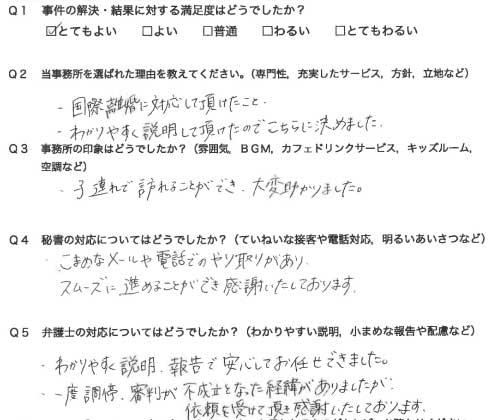 Q1 事件の解決・結果に対する満足度はどうでしたか?
☑とてもよい □よい □普通 □わるい □とてもわるい
Q2 当事務所を選ばれた理由を教えてください。(専門性,充実したサービス,方針,立地など)
・国際離婚に対応して頂けたこと。
・わかりやすく説明して頂けたのでこちらに決めました.
Q3 事務所の印象はどうでしたか?(雰囲気,BGM,カフェドリンクサービス,キッズルーム,
空調など)
・子連れで訪れることができ、大変助かりました。
Q4 秘書の対応についてはどうでしたか?(ていねいな接客や電話対応,明るいあいさつなど)
・こまめなメールや電話でのやり取りがあり、
スムーズに進めることができ感謝いたしております.
Q5 弁護士の対応についてはどうでしたか?(わかりやすい説明,小まめな報告や配慮など)
・わかりやすく説明、報告で安心してお任せできました。
・一度調停、審判が不成立となった経緯がありましたが、
依頼を受けて頂き感謝いたしております.